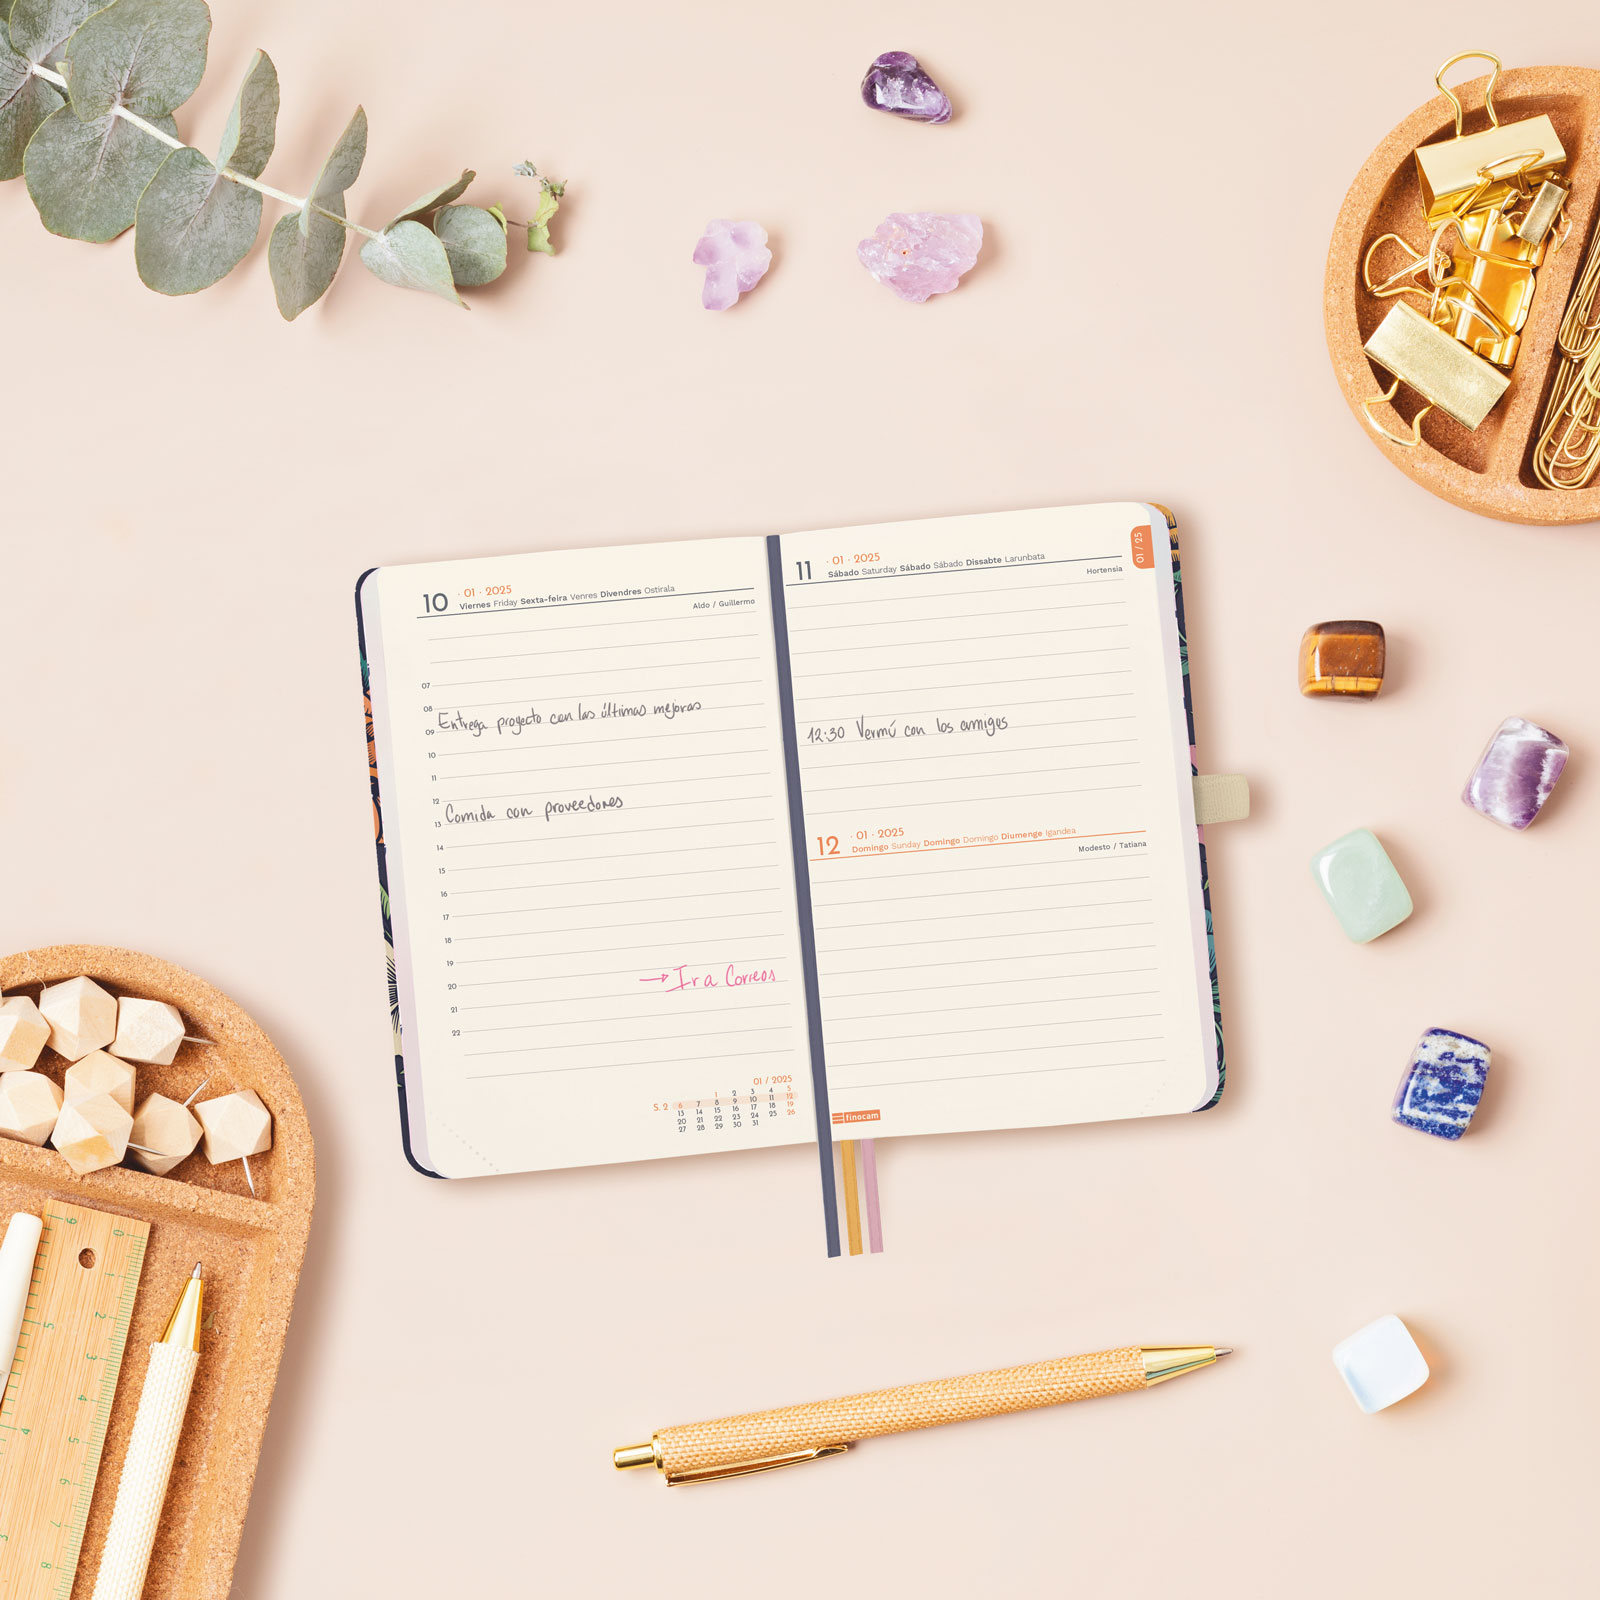 10 · 01 · 2025
Viernes Friday Sexta-feira Venres Divendres Ostirala
Aldo / Guillermo
07
08
Entrega proyecto con las últimas mejoras
09
10
11
12
Comida con proveedores
13
14
15
16
17
18
19
→ Ir a Correos
20
21
22
01 / 2025
1 2 3 4 5
S. 2 6 7 8 9 10 11 12
13 14 15 16 17 18 19
20 21 22 23 24 25 26
27 28 29 30 31
11 · 01 · 2025
Sábado Saturday Sábado Sábado Dissabte Larunbata
Hortensia
01 / 25
12:30 Vermú con los amigos
12 · 01 · 2025
Domingo Sunday Domingo Domingo Diumenge Igandea
Modesto / Tatiana
finocam